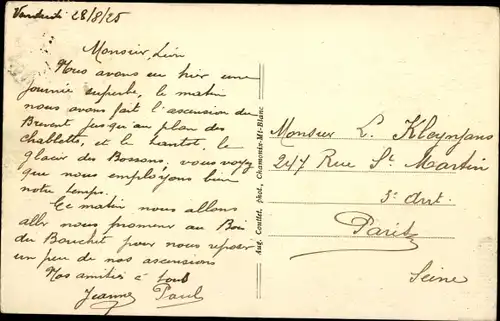 Vendredi 28/8/25
Monsieur Léon
Nous avons eu hier une
journée superbe, le matin
nous avons fait l'ascension du
Brévent jusqu'au plan des
Chablettes, et le tantot, le
glacier des Bossons. vous voyez
que nous employons bien
notre temps.
Ce matin nous allons
aller nous promener au Bois
du Bouchet pour nous reposer
un peu de nos ascensions
Nos amitiés à tous
Jeanne Paul
Aug. Couttet, phot., Chamonix-Mt-Blanc
Monsieur L. Kleynjans
247 Rue St Martin
3e Arrt.
Paris
Seine